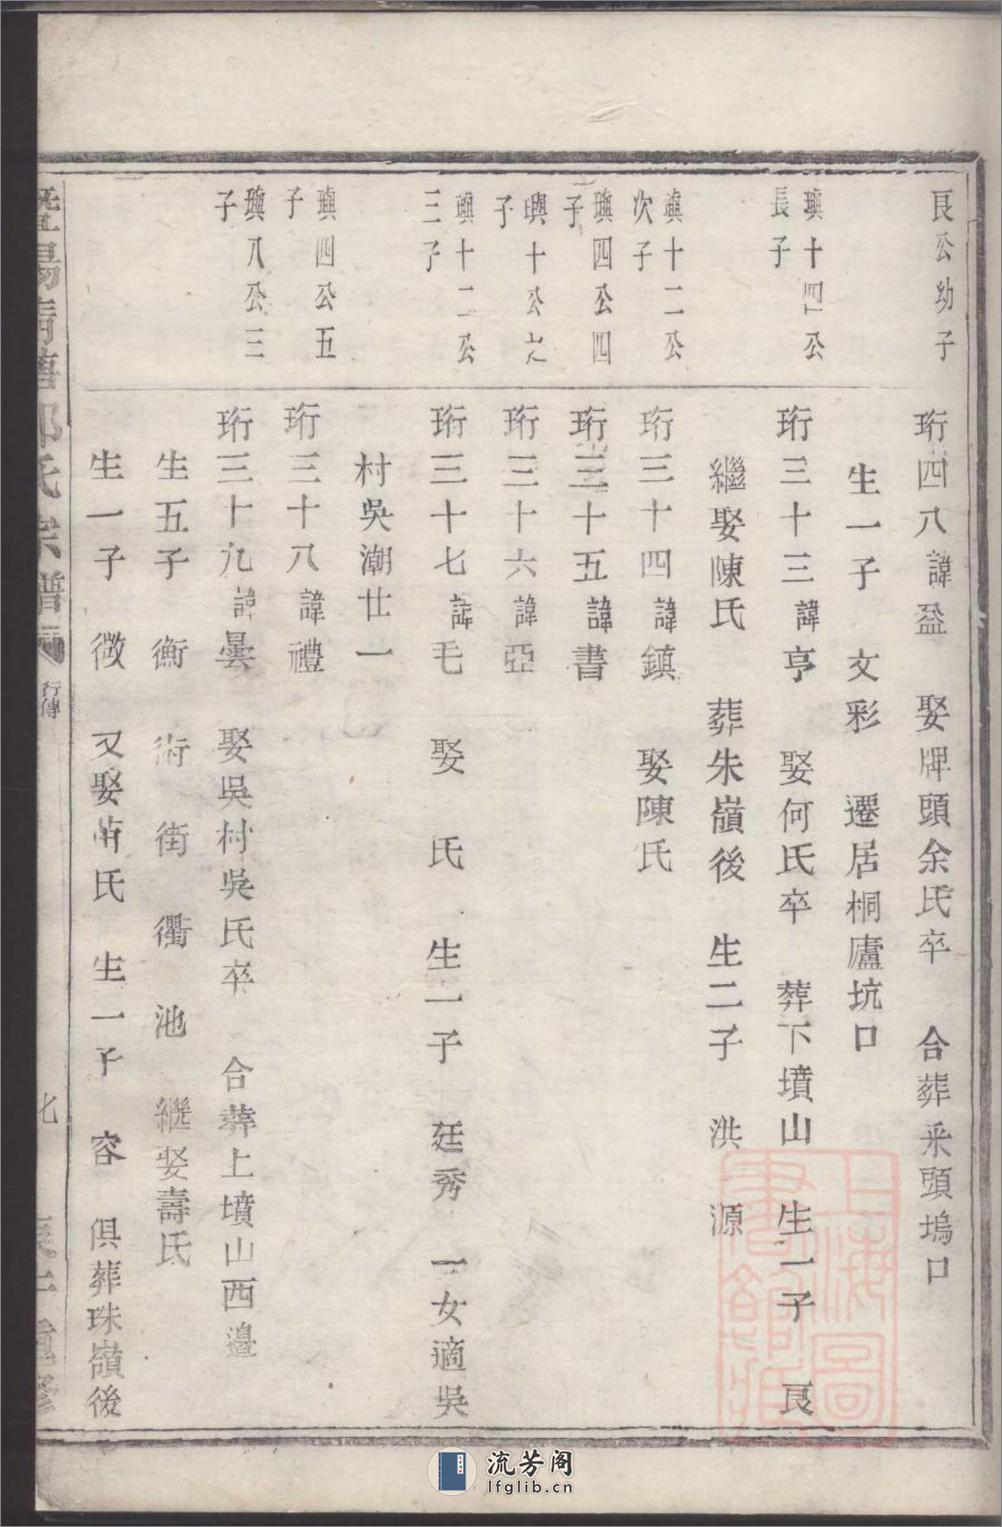 良公幼子
珩四八諱益 娶牌頭余氏卒 合葬釆頭塢口
生一子 文彩 遷居桐廬坑口
璵十四公長子
珩三十三諱亨 娶何氏卒 葬下墳山 生一子 良
繼娶陳氏 葬朱嶺後 生二子 洪 源
璵十二公次子
珩三十四諱鎮 娶陳氏
璵四公四子
珩三十五諱書
璵十公之子
珩三十六諱亞
璵十二公三子
珩三十七諱毛 娶 氏 生一子 廷秀 一女適吳
村吳潮廿一
璵四公五子
珩三十八諱禮
璵八公三子
珩三十九諱曇 娶吳村吳氏卒 合葬上墳山西邉
生五子 衡 術 街 衢 池 繼娶壽氏
生一子 微 又娶 氏 生一子 容 俱葬珠嶺後
暨陽 郭氏宗譜 行傳
上海圖書館藏
流芳阁
lfglib.cn